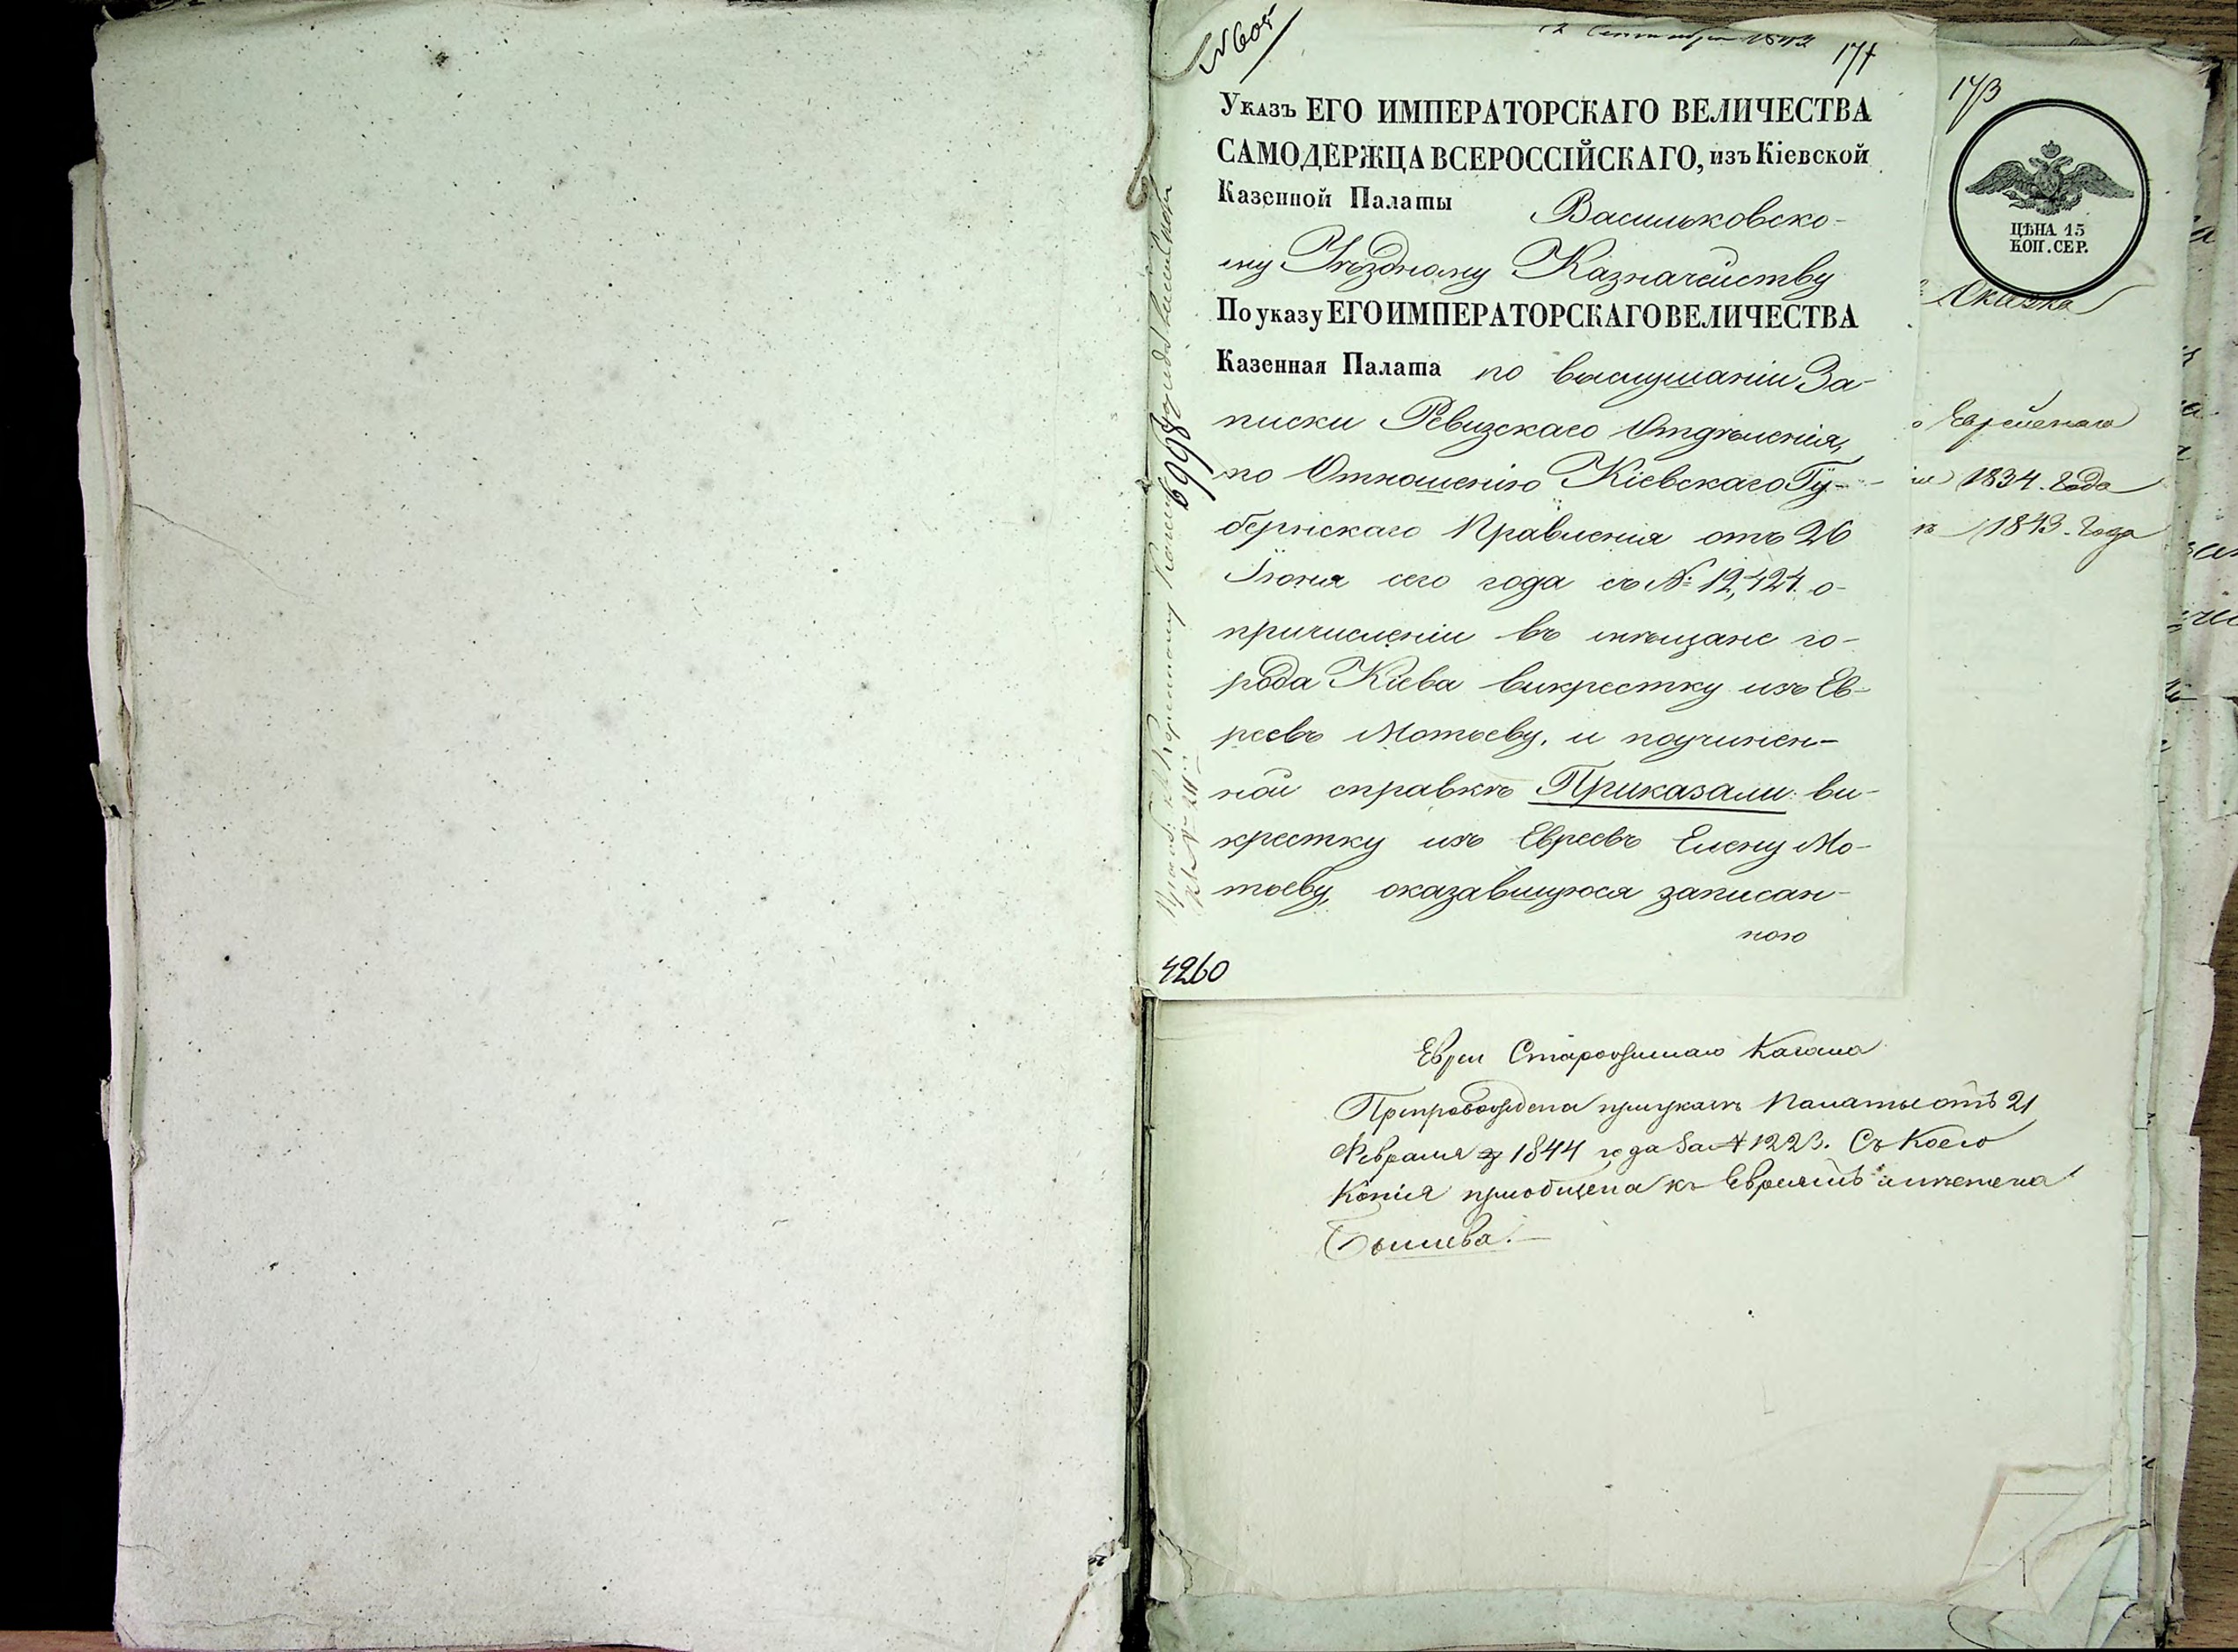 № 605
12 Сентября 1843
177
Указъ ЕГО ИМПЕРАТОРСКАГО ВЕЛИЧЕСТВА
САМОДЕРЖЦА ВСЕРОССІЙСКАГО, изъ Кіевской
Казенной Палаты Васильковско-
му Уѣздному Казначейству
По указу ЕГО ИМПЕРАТОРСКАГО ВЕЛИЧЕСТВА
Казенная Палата по выслушаніи За-
писки Ревизскаго Отдѣленія,
по Отношенію Кіевскаго Гу-
бернскаго Правленія отъ 26
Іюня сего года съ № 12,424. о-
причисленіи въ мѣщане го-
рода Кіева викрестку изъ Ев-
реевъ Мотьеву, и поучинен-
ной справкѣ Приказали: ви-
крестку изъ Евреевъ Елену Мо-
тьеву, оказавшуюся записан-
ною
4260
6998
173
ЦѢНА 15
КОП. СЕР.
Сказка
Еврейскаго
1834. Года
1843. Года
Евреи Старожилаго Кагала
Препровождена при указѣ Палаты отъ 21
Февраля 1844 года За № 1223. Съ Коего
Копія приобщена къ Евреямъ